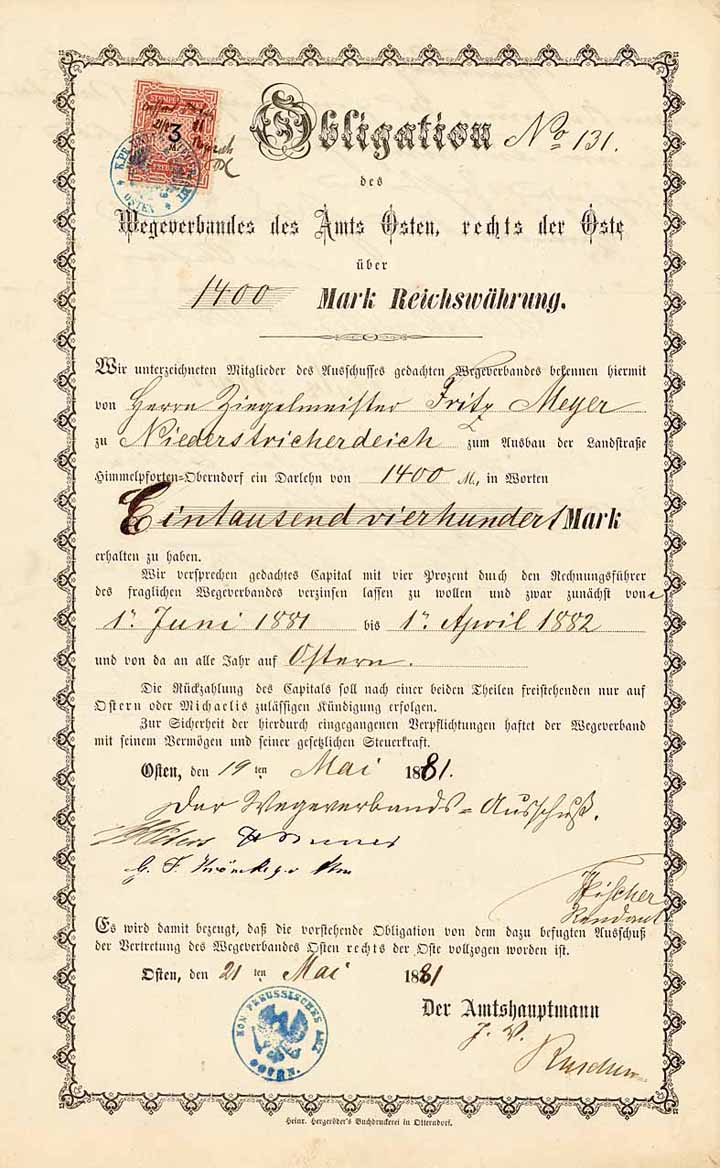 STEMPEL
3
Obligation No 131.
des
Wegeverbandes des Amts Osten, rechts der Oste
über
1400 Mark Reichswährung.
Wir unterzeichneten Mitglieder des Ausschusses gedachten Wegeverbandes bekennen hiermit
von Herrn Ziegelmeister Fritz Meyer
zu Niederstricherdeich zum Ausbau der Landstraße
Himmelpforten-Oberndorf ein Darlehn von 1400 M., in Worten
Eintausend vierhundert Mark
erhalten zu haben.
Wir versprechen gedachtes Capital mit vier Prozent durch den Rechnungsführer
des fraglichen Wegeverbandes verzinsen lassen zu wollen und zwar zunächst vom
1r. Juni 1881 bis 1r. April 1882
und von da an alle Jahr auf Ostern.
Die Rückzahlung des Capitals soll nach einer beiden Theilen freistehenden nur auf
Ostern oder Michaelis zulässigen Kündigung erfolgen.
Zur Sicherheit der hierdurch eingegangenen Verpflichtungen haftet der Wegeverband
mit seinem Vermögen und seiner gesetzlichen Steuerkraft.
Osten, den 19 ten Mai 1881.
Der Wegeverbands-Ausschuß.
Fischer
Rendant
Es wird damit bezeugt, daß die vorstehende Obligation von dem dazu befugten Ausschuß
der Vertretung des Wegeverbandes Osten rechts der Oste vollzogen worden ist.
Osten, den 21 ten Mai 1881
Der Amtshauptmann
J. V.
KÖN. PREUSSISCHES AMT
OSTEN.
Heinr. Hergeröder's Buchdruckerei in Otterndorf.